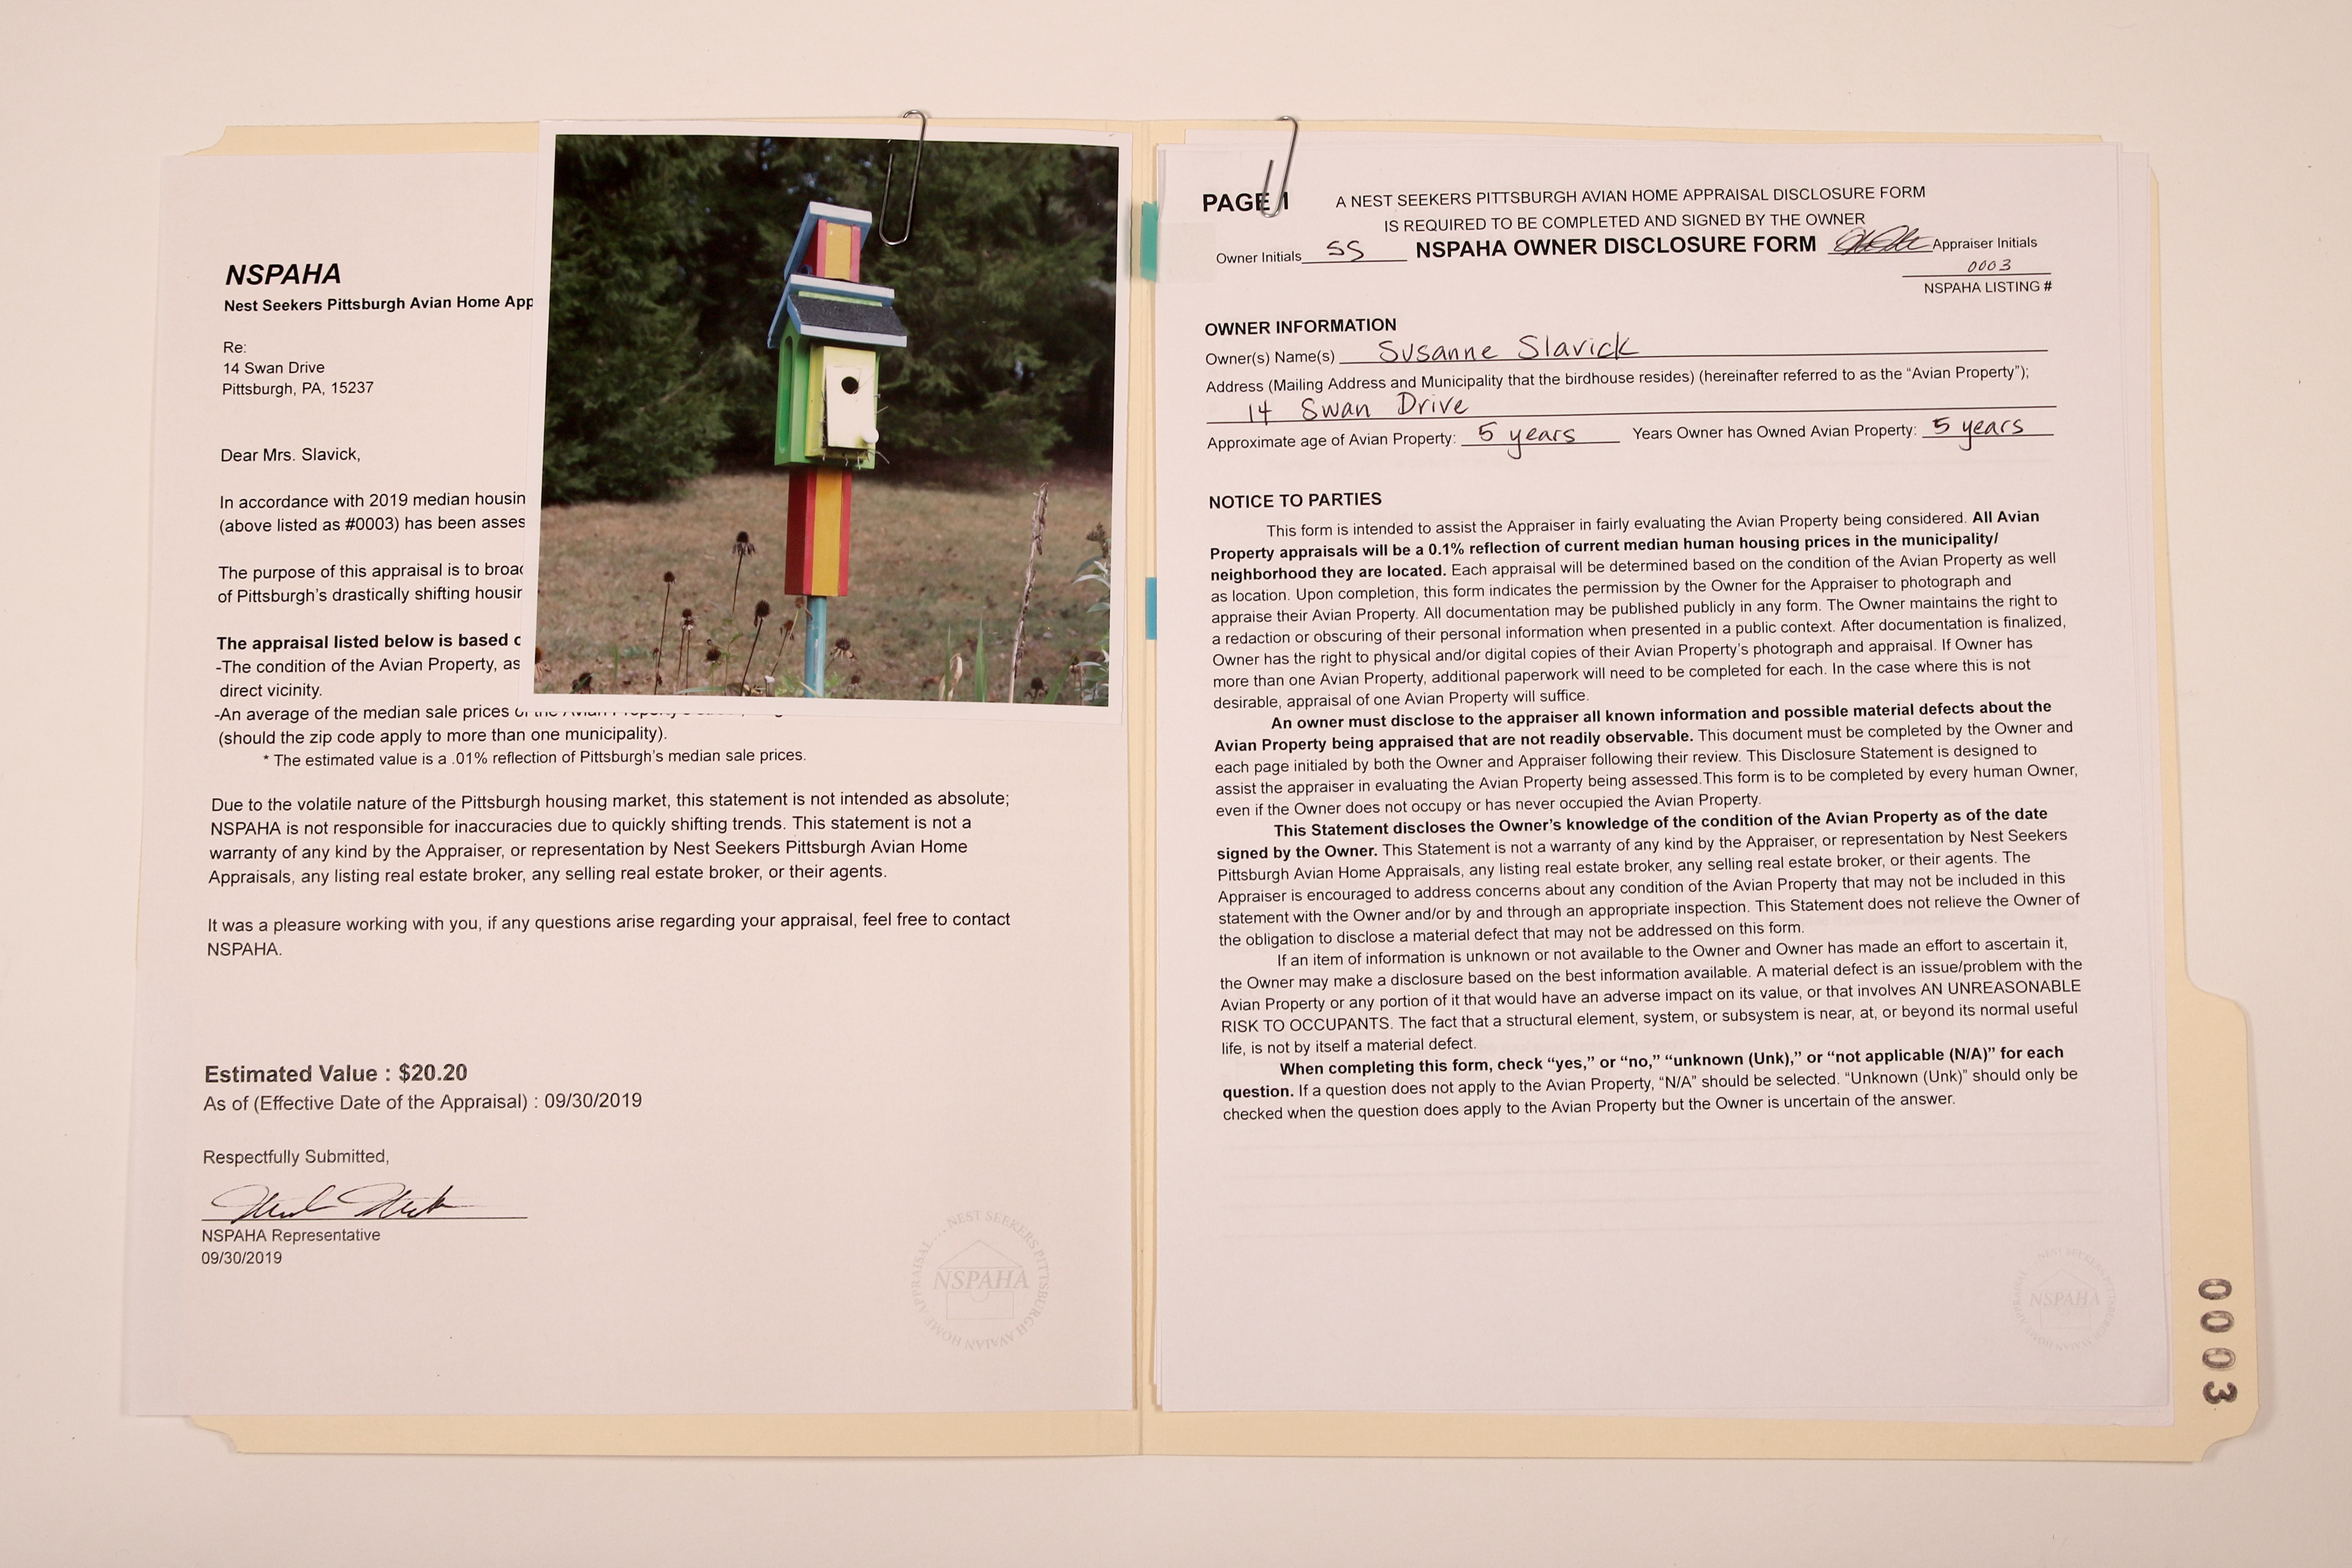 NSPAHA
Nest Seekers Pittsburgh Avian Home App
Re:
14 Swan Drive
Pittsburgh, PA, 15237
Dear Mrs. Slavick,
In accordance with 2019 median housin
(above listed as #0003) has been asses
The purpose of this appraisal is to broad
of Pittsburgh's drastically shifting housin
The appraisal listed below is based o
-The condition of the Avian Property, as
direct vicinity.
-An average of the median sale prices of the Avian Property's
(should the zip code apply to more than one municipality).
* The estimated value is a .01% reflection of Pittsburgh's median sale prices.
Due to the volatile nature of the Pittsburgh housing market, this statement is not intended as absolute;
NSPAHA is not responsible for inaccuracies due to quickly shifting trends. This statement is not a
warranty of any kind by the Appraiser, or representation by Nest Seekers Pittsburgh Avian Home
Appraisals, any listing real estate broker, any selling real estate broker, or their agents.
It was a pleasure working with you, if any questions arise regarding your appraisal, feel free to contact
NSPAHA.
Estimated Value : $20.20
As of (Effective Date of the Appraisal) : 09/30/2019
Respectfully Submitted,
NSPAHA Representative
09/30/2019
NEST SEEKERS PITTSBURGH AVAIAN HOME APPRAISAL...
NSPAHA
PAGE 1
A NEST SEEKERS PITTSBURGH AVIAN HOME APPRAISAL DISCLOSURE FORM
IS REQUIRED TO BE COMPLETED AND SIGNED BY THE OWNER
Owner Initials SS NSPAHA OWNER DISCLOSURE FORM Appraiser Initials
0003
NSPAHA LISTING #
OWNER INFORMATION
Owner(s) Name(s) Susanne Slavick
Address (Mailing Address and Municipality that the birdhouse resides) (hereinafter referred to as the "Avian Property");
14 Swan Drive
Approximate age of Avian Property: 5 years Years Owner has Owned Avian Property: 5 years
NOTICE TO PARTIES
This form is intended to assist the Appraiser in fairly evaluating the Avian Property being considered. All Avian
Property appraisals will be a 0.1% reflection of current median human housing prices in the municipality/
neighborhood they are located. Each appraisal will be determined based on the condition of the Avian Property as well
as location. Upon completion, this form indicates the permission by the Owner for the Appraiser to photograph and
appraise their Avian Property. All documentation may be published publicly in any form. The Owner maintains the right to
a redaction or obscuring of their personal information when presented in a public context. After documentation is finalized,
Owner has the right to physical and/or digital copies of their Avian Property's photograph and appraisal. If Owner has
more than one Avian Property, additional paperwork will need to be completed for each. In the case where this is not
desirable, appraisal of one Avian Property will suffice.
An owner must disclose to the appraiser all known information and possible material defects about the
Avian Property being appraised that are not readily observable. This document must be completed by the Owner and
each page initialed by both the Owner and Appraiser following their review. This Disclosure Statement is designed to
assist the appraiser in evaluating the Avian Property being assessed.This form is to be completed by every human Owner,
even if the Owner does not occupy or has never occupied the Avian Property.
This Statement discloses the Owner's knowledge of the condition of the Avian Property as of the date
signed by the Owner. This Statement is not a warranty of any kind by the Appraiser, or representation by Nest Seekers
Pittsburgh Avian Home Appraisals, any listing real estate broker, any selling real estate broker, or their agents. The
Appraiser is encouraged to address concerns about any condition of the Avian Property that may not be included in this
statement with the Owner and/or by and through an appropriate inspection. This Statement does not relieve the Owner of
the obligation to disclose a material defect that may not be addressed on this form.
If an item of information is unknown or not available to the Owner and Owner has made an effort to ascertain it,
the Owner may make a disclosure based on the best information available. A material defect is an issue/problem with the
Avian Property or any portion of it that would have an adverse impact on its value, or that involves AN UNREASONABLE
RISK TO OCCUPANTS. The fact that a structural element, system, or subsystem is near, at, or beyond its normal useful
life, is not by itself a material defect.
When completing this form, check "yes," or "no," "unknown (Unk)," or "not applicable (N/A)" for each
question. If a question does not apply to the Avian Property, "N/A" should be selected. "Unknown (Unk)" should only be
checked when the question does apply to the Avian Property but the Owner is uncertain of the answer.
NSPAHA
0003